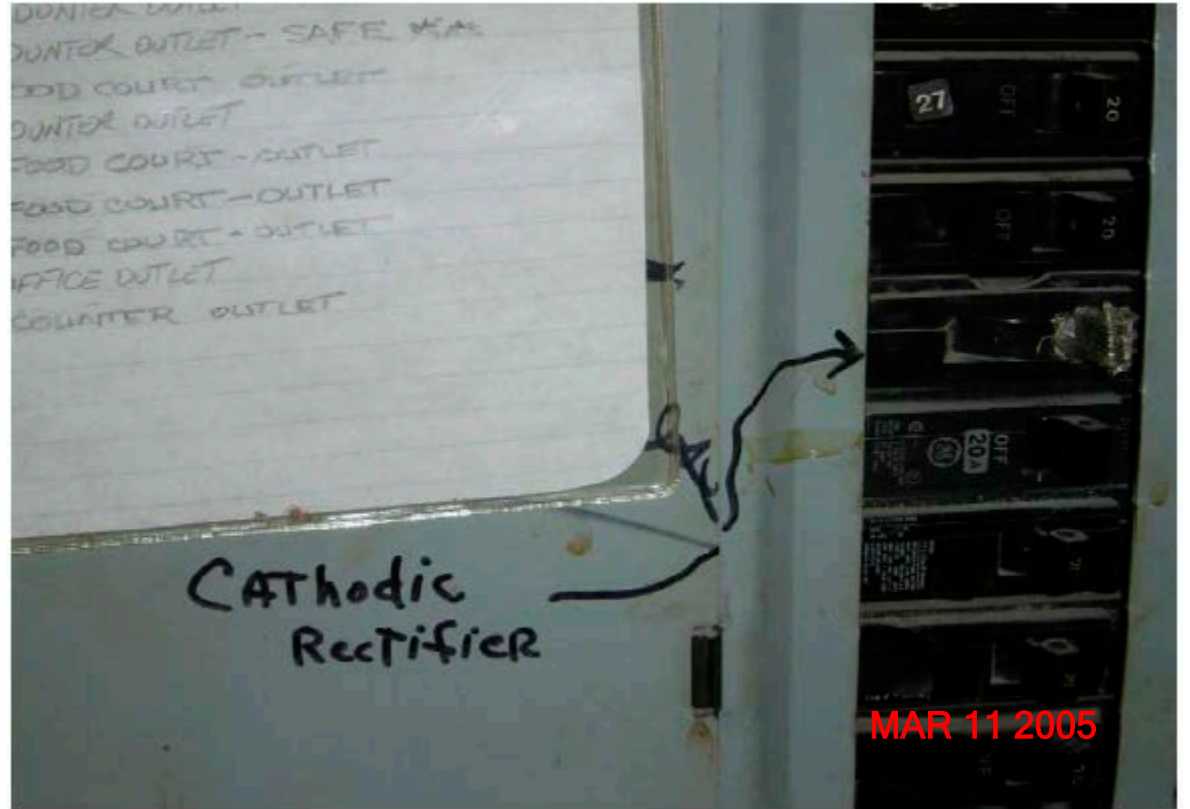 OUNTER OUTLET
OUNTER OUTLET - SAFE
OOD COURT OUTLET
OUNTER OUTLET
FOOD COURT - OUTLET
FOOD COURT - OUTLET
FOOD COURT - OUTLET
OFFICE OUTLET
COUNTER OUTLET
CAThodic
RecTifieR
27
OFF
20
OFF
20
OFF
20A
MAR 11 2005